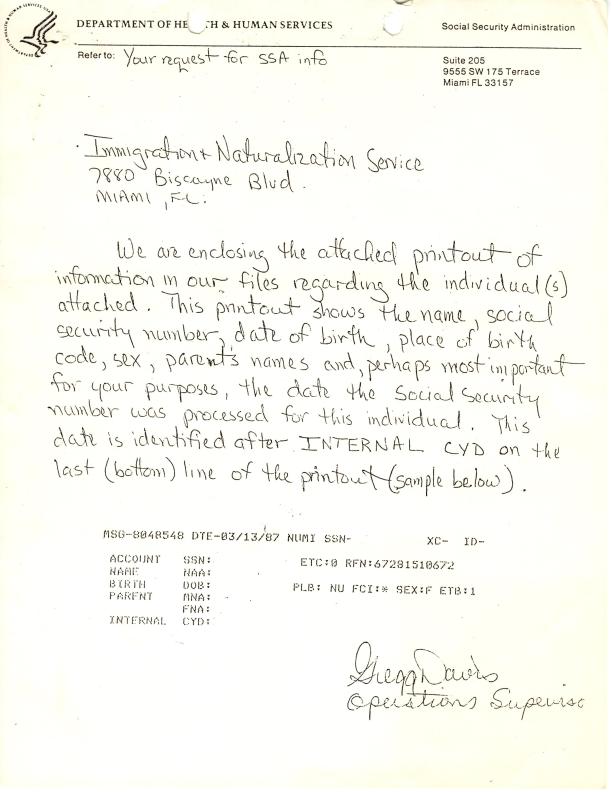 DEPARTMENT OF HEALTH & HUMAN SERVICES
Social Security Administration
Refer to: Your request for SSA info
Suite 205
9555 SW 175 Terrace
Miami FL 33157
Immigration + Naturalization Service
7880 Biscayne Blvd.
MIAMI, FL.
We are enclosing the attached printout of
information in our files regarding the individual(s)
attached. This printout shows the name, social
security number, date of birth, place of birth
code, sex, parent's names and, perhaps most important
for your purposes, the date the Social Security
number was processed for this individual. This
date is identified after INTERNAL CYD on the
last (bottom) line of the printout (sample below).
MSG-8048548 DTE-03/13/87 NUMI SSN- XC- ID-
ACCOUNT SSN: ETC:0 RFN:67281510672
NAME NAA:
BIRTH DOB: PLB: NU FCI:* SEX:F ETB:1
PARENT MNA:
FNA:
INTERNAL CYD:
Gregg Davis
Operations Superviso